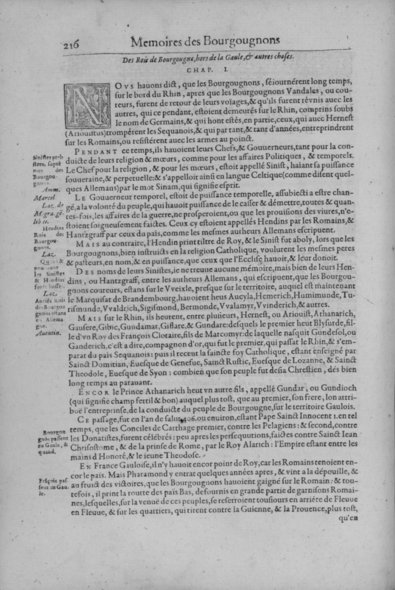 216
Memoires des Bourgougnons
Des Rois de Bourgougne, hors de la Gaule, & autres choses.
CHAP. I.
NOVS hauons dict, que les Bourgougnons, séiournérent long temps,
sur le bord du Rhin, apres que les Bourgougnons Vandales, ou cou-
reurs, furent de retour de leurs voiages, & qu'ils furent révnis auec les
autres, qui ce pendant, estoient demeurés sur le Rhin, comprins soubs
le nom de Germains, & qui hont estés, en partie, ceux, qui auec Hernest
(Ariouistus) trompérent les Sequanois, & qui par tant, & tant d'années, entreprindrent
sur les Romains, ou resistérent auec les armes au poinct.
PENDANT ce temps, ils hauoient leurs Chefs, & Gouuerneurs, tant pour la con-
duicte de leurs religion & mœurs, comme pour les affaires Politiques, & temporels.
Le Chef pour la religion, & pour les mœurs, estoit appellé Sinist, haiant sa puissance
souueraine, & perpetuelle: & s'appelloit ainsi en langue Celtique (comme disent quel-
ques Allemans) par le mot Sinam, qui signifie esprit.
LE Gouuerneur temporel, estoit de puissance temporelle, assubiecti a estre chan-
gé, a la volonté du peuple, qui hauoit puissance de le casser & démettre, toutes & quan-
tes-fois, les affaires de la guerre, ne prosperoient, ou que les prouisions des viures, n'e-
stoient soigneusement faictes. Ceux cy estoient appellés Hendins par les Romains, &
Hantzgraff par ceux du païs, comme les mesmes autheurs Allemans escriuent.
MAIS au contraire, l'Hendin print tiltre de Roy, & le Sinist fut aboly, lors que les
Bourgougnons, bien instruicts en la religion Catholique, voulurent les mesmes peres
& pasteurs, en nom, & en puissance, que ceux que l'Ecclise hauoit, & leur donoit.
DES noms de leurs Sinistes, ie ne treuue aucune mémoire, mais bien de leurs Hen-
dins, ou Hantzgraff, entre les autheurs Allemans, qui escriuent, que les Bourgou-
gnons coureurs, estans sur le Vvieisle, presque sur le territoire, auquel est maintenant
le Marquisat de Brandembourg, hauoient heus Aucyla, Hemerich, Humimunde, Tu-
rismunde, Vvaldrich, Sigismond, Bermonde, Vvalamyr, Vvinderich, & autres.
MAIS sur le Rhin, ils heurent, entre pluieurs, Hernest, ou Ariouist, Athanarich,
Gausere, Gibic, Gundamar, Gislare, & Gundare: desquels le premier heut Blysurde, fil-
le d'vn Roy des François Clotaire, fils de Marcomyr: de laquelle nasquit Gundefol, ou
Ganderich, c'est a dire, compagnon d'or, qui fut le premier, qui passat le Rhin, & s'em-
parat du pais Sequanois: puis il receut la saincte foy Catholique, estant enseigné par
Sainct Domitian, Euesque de Genefue, Sainct Rustic, Euesque de Lozanne, & Sainct
Theodole, Euesque de Syon: combien que son peuple fut desia Chrestien, dés bien
long temps au parauant.
ENCOR le Prince Athanarich heut vn autre fils, appellé Gundar, ou Gundioch
(qui signifie champ fertil & bon) auquel plus tost, que au premier, son frere, lon attri-
büe l'entreprinse, de la conduicte du peuple de Bourgougne, sur le territoire Gaulois.
CE passage, fut en l'an de salut, ou enuiron, estant Pape Sainct Innocent 1. en tel
temps, que les Conciles de Carthage premier, contre les Pelagiens: & second, contre
les Donatistes, furent célébrés: peu apres les persequutions, faictes contre Sainct Iean
Chrisostome, & de la prinse de Rome, par le Roy Alarich: l'Empire estant entre les
mains d'Honoré, & le ieune Theodose.
EN France Gauloise, il n'y hauoit encor point de Roy, car les Romains tenoient en-
cor le pais. Mais Pharamond y entrat quelques années apres, & vint a la dépouille, &
au fruict des victoires, que les Bourgougnons hauoient gaigné sur le Romain: & tou-
tefois, il print la routte des pais Bas, defournis en grande partie de garnisons Romai-
nes, lesquelles, sur la venue de ces peuples, se resserroient tousiours en arriére de Fleuue
en Fleuue, & sur les quartiers, qui tirent contre la Guienne, & la Prouence, plus tost,
qu'en
Amm.
Marcel
Hendins
Rois des
Bourgou-
gnons.
Bourgou-
gnōs passent
en Gaule, &
quand.